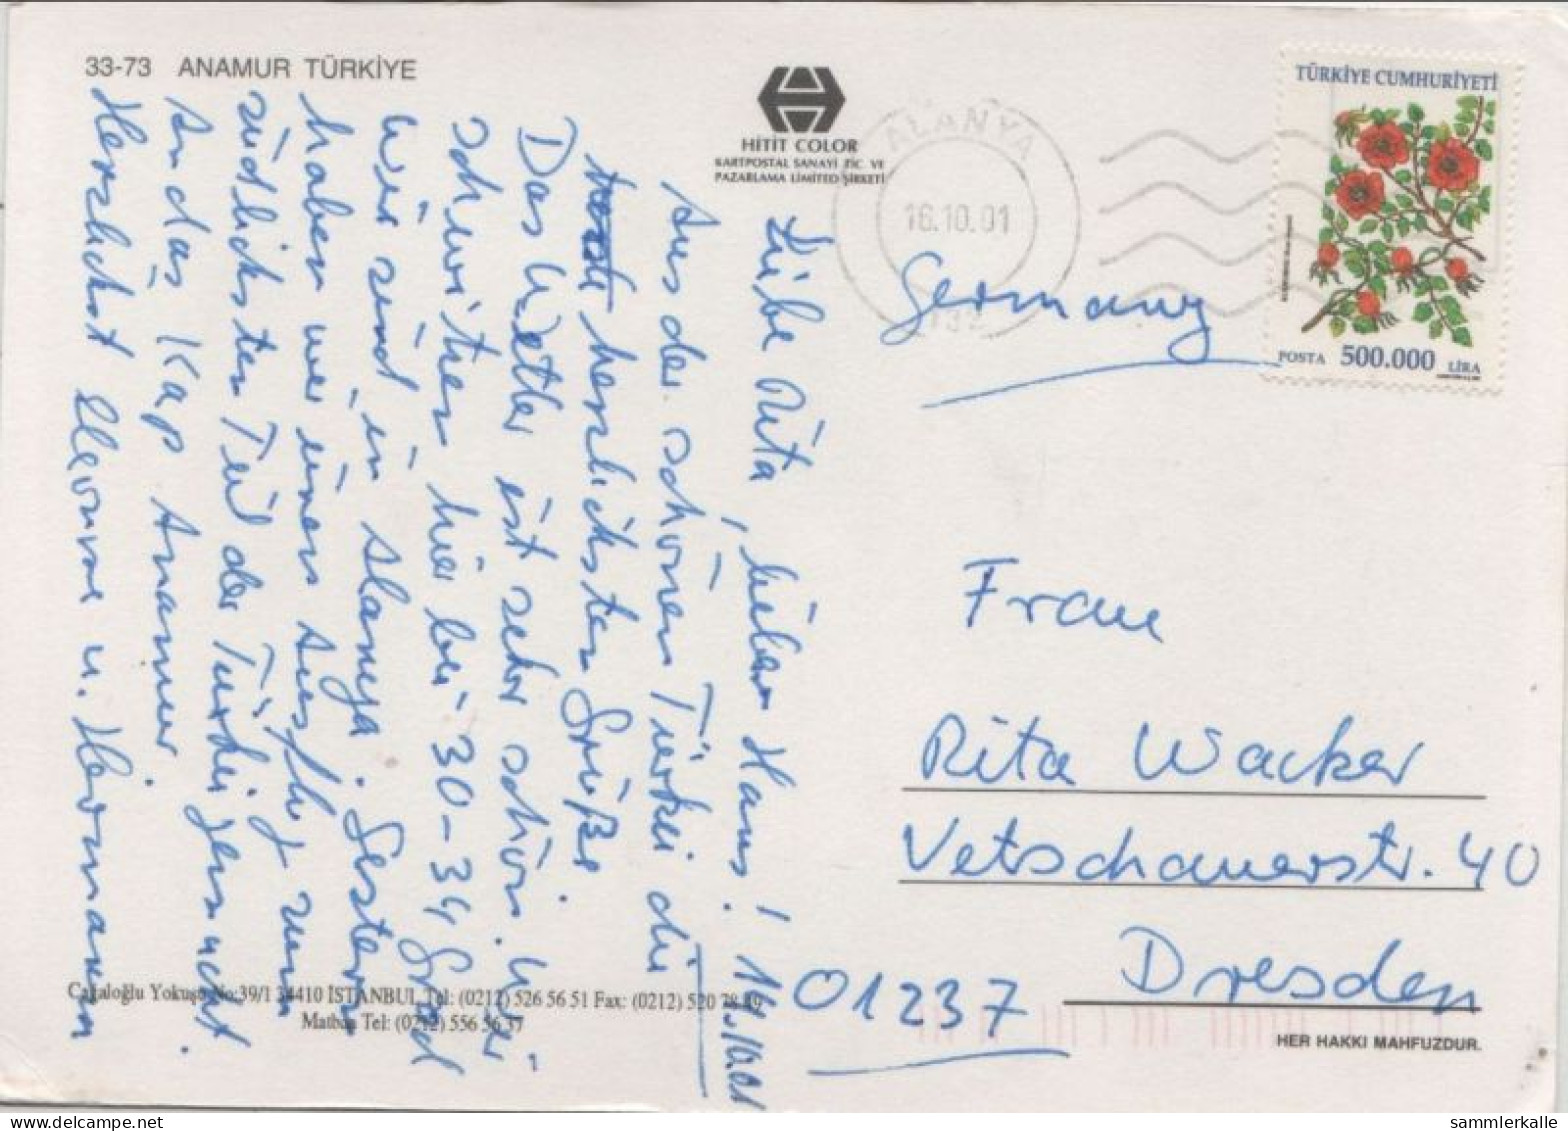 33-73 ANAMUR TÜRKİYE
HİTİT COLOR
KARTPOSTAL SANAYİ TİC VE
PAZARLAMA LİMİTED ŞİRKETİ
ALANYA
16.10.01
TÜRKİYE CUMHURİYETİ
POSTA 500.000 LİRA
Germany
14.10.01
Liebe Rita, lieber Hans!
Aus der schönen Türkei die
herzlichsten Grüße
Das Wetter ist sehr schön. Wir
schwitzen hier bei 30-34 Grad
Wir sind in Alanya. Gestern
haben wir einen Ausflug zum
südlichsten Teil der Türkei gemacht.
An das Kap Anamur.
Herzlichst u. Hermann
Frau
Rita Wacker
Vetschauerstr. 40
Dresden
01237
Cağaloğlu Yokuşu No:39/1 34410 İSTANBUL Tel: (0212) 526 56 51 Fax: (0212) 520 78 89
Matbaa Tel: (0212) 556 56 37
HER HAKKI MAHFUZDUR.
sammlerkalle